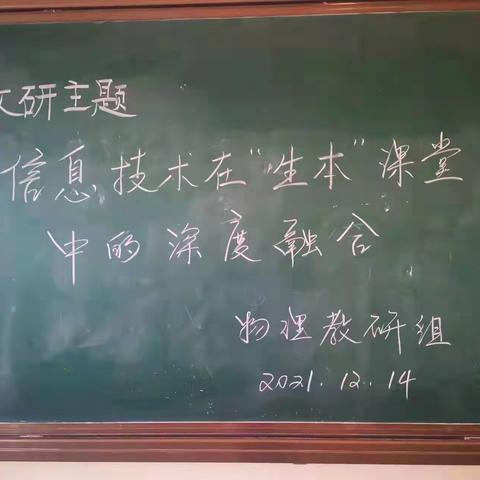 教研主题
信息技术在"生本"课堂
中的深度融合
物理教研组
2021.12.14